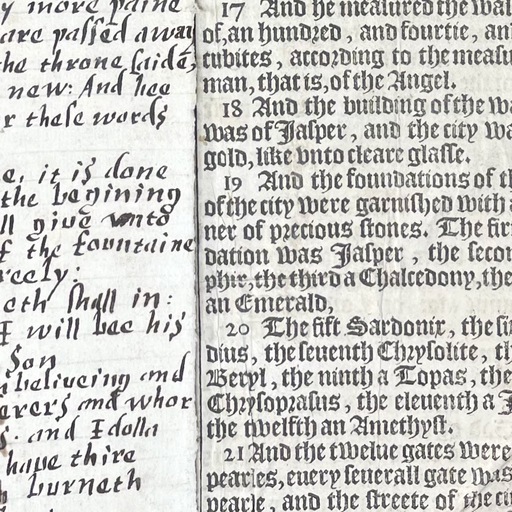 more paine
are passed away
the throne saide,
new: And hee
r these words
e, it is done
the begining
ll give vnto
f the fountaine
reely:
eth shall in:
I will bee his
Son
nbeliueing and
erers and whor
s. and Idolla
haue thire
burneth
17 And he measured the wal
of, an hundred, and fourtie, an
cubites, according to the measu
man, that is, of the Angel.
18 And the building of the wa
was of Jasper, and the city wa
gold, like vnto cleare glasse.
19 And the foundations of t
of the city were garnished with a
ner of precious stones. The fir
dation was Jasper, the secon
phir, the third a Chalcedony, the
an Emerald,
20 The fift Sardonix, the si
dius, the seuenth Chrysolite, th
Beryl, the ninth a Topas, the
Chrysoprasus, the eleuenth a J
the twelfth an Amethyst.
21 And the twelue gates were
pearles, euery seuerall gate was
pearle, and the streete of the ci